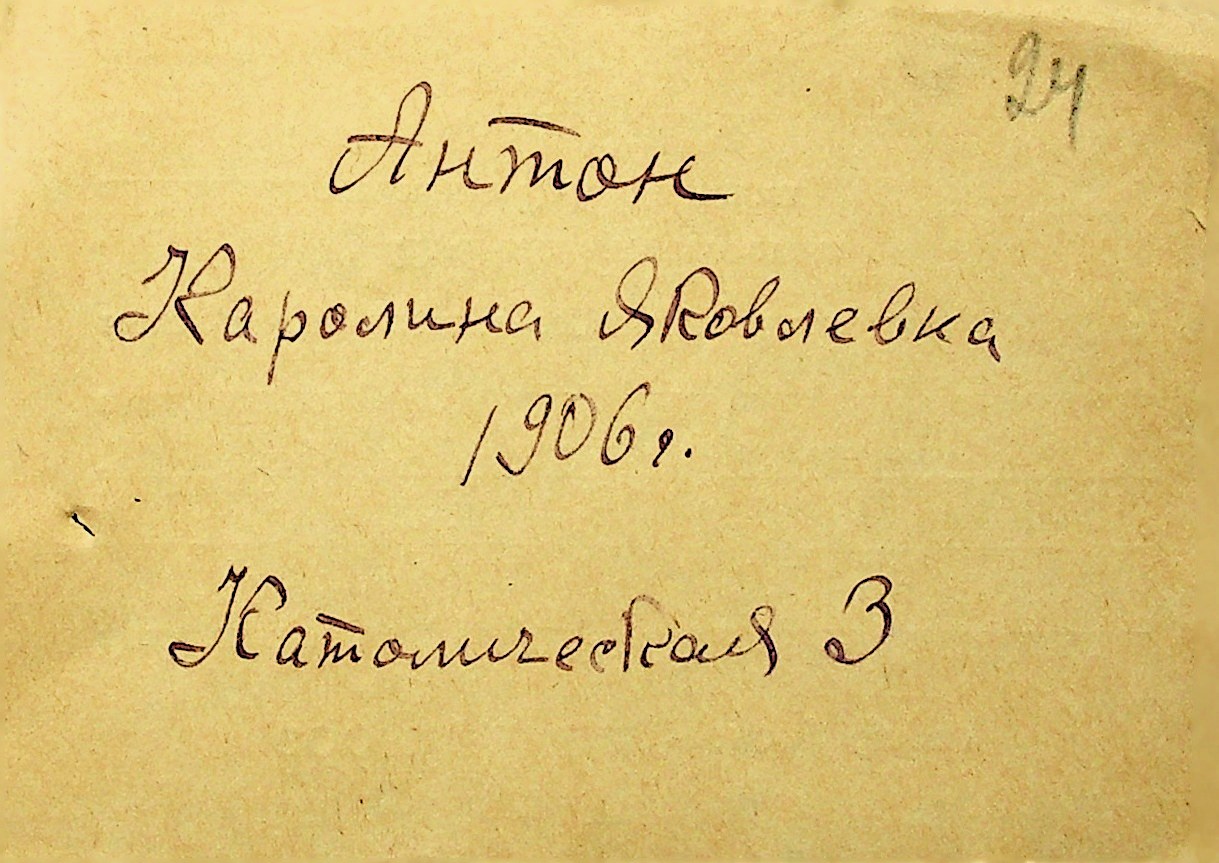 24
Антон
Каролина Яковлевна
1906 г.
Католическая 3